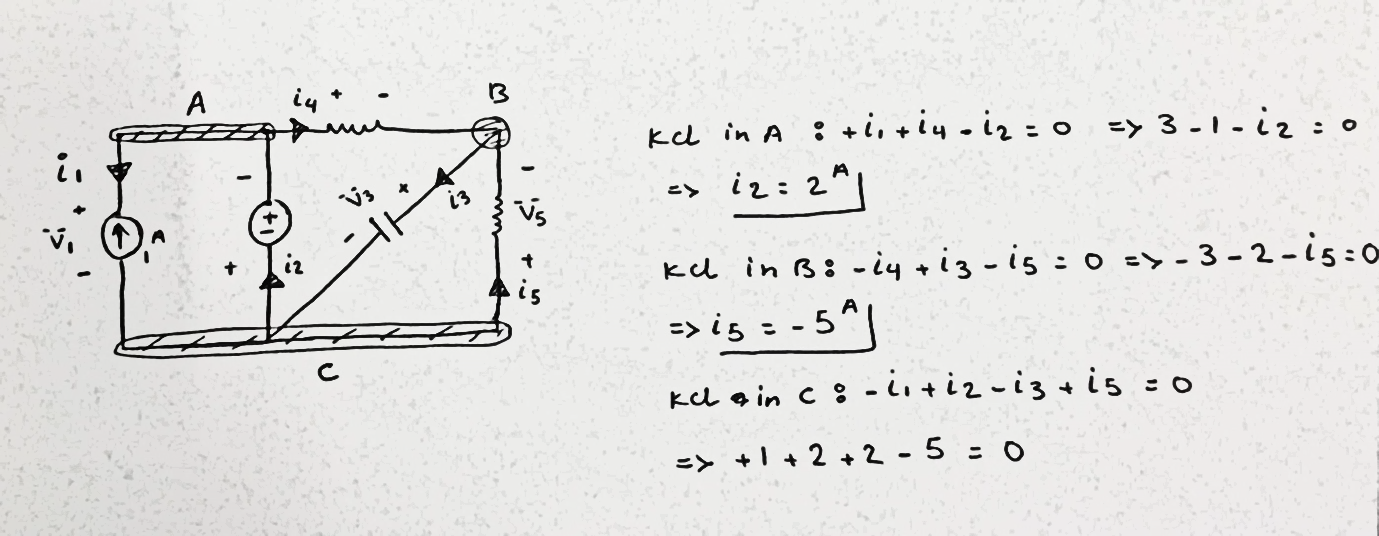 A
i4 + -
B
i1
+
v1
-
1A
-
+
i2
v3
+
-
i3
-
v5
+
i5
C
kcl in A : +i1 + i4 - i2 = 0 => 3 - 1 - i2 = 0
=> i2 = 2 A
kcl in B : -i4 + i3 - i5 = 0 => - 3 - 2 - i5 = 0
=> i5 = - 5 A
kcl in C : - i1 + i2 - i3 + i5 = 0
=> +1 + 2 + 2 - 5 = 0